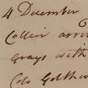 4 December
Collier arri
Grays with
Colo Goldthw